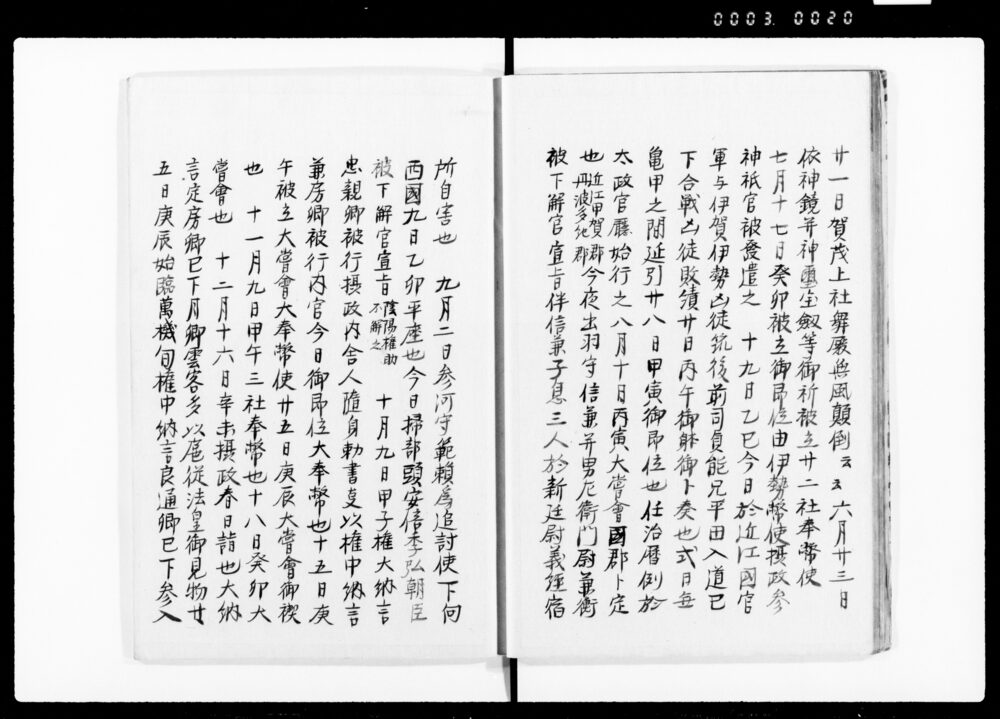 0003 0020
廿一日賀茂上社舞殿無風顛倒云云 六月廿三日
依神鏡并神璽宝剱等御祈被立廿二社奉幣使
七月十七日癸卯被立御即位由伊勢幣使摂政参
神祇官被發遣之 十九日乙巳今日於近江国官
軍与伊賀伊勢凶徒筑後前司貞能兄平田入道已
下合戦凶徒敗績廿日丙午御躰御卜奏也式日毎
亀甲之間延引廿八日甲寅御即位也任治暦例於
太政官廳始行之八月十日丙寅大嘗會國郡卜定
也近江甲賀郡丹波多紀郡今夜出羽守信兼并男左衛門尉兼衡
被下解官宣旨伴信兼子息三人於新廷尉義経宿
所自害也 九月二日参河守範頼為追討使下向
西國九日乙卯平座也今日掃部頭安倍季弘朝臣
被下解官宣旨陰陽権助不解之 十月九日甲子権大納言
忠親卿被行摂政内舎人随身勅書㕝以権中納言
兼房卿被行内官今日御即位大奉幣也十五日庚
午被立大嘗會大奉幣使廿五日庚辰大嘗會御禊
也 十一月九日甲午三社奉幣也十八日癸卯大
嘗會也 十二月十六日辛未摂政春日詣也大納
言定房卿已下月卿雲客多以扈従法皇御見物廿
五日庚辰始臨萬機旬権中納言良通卿已下参入